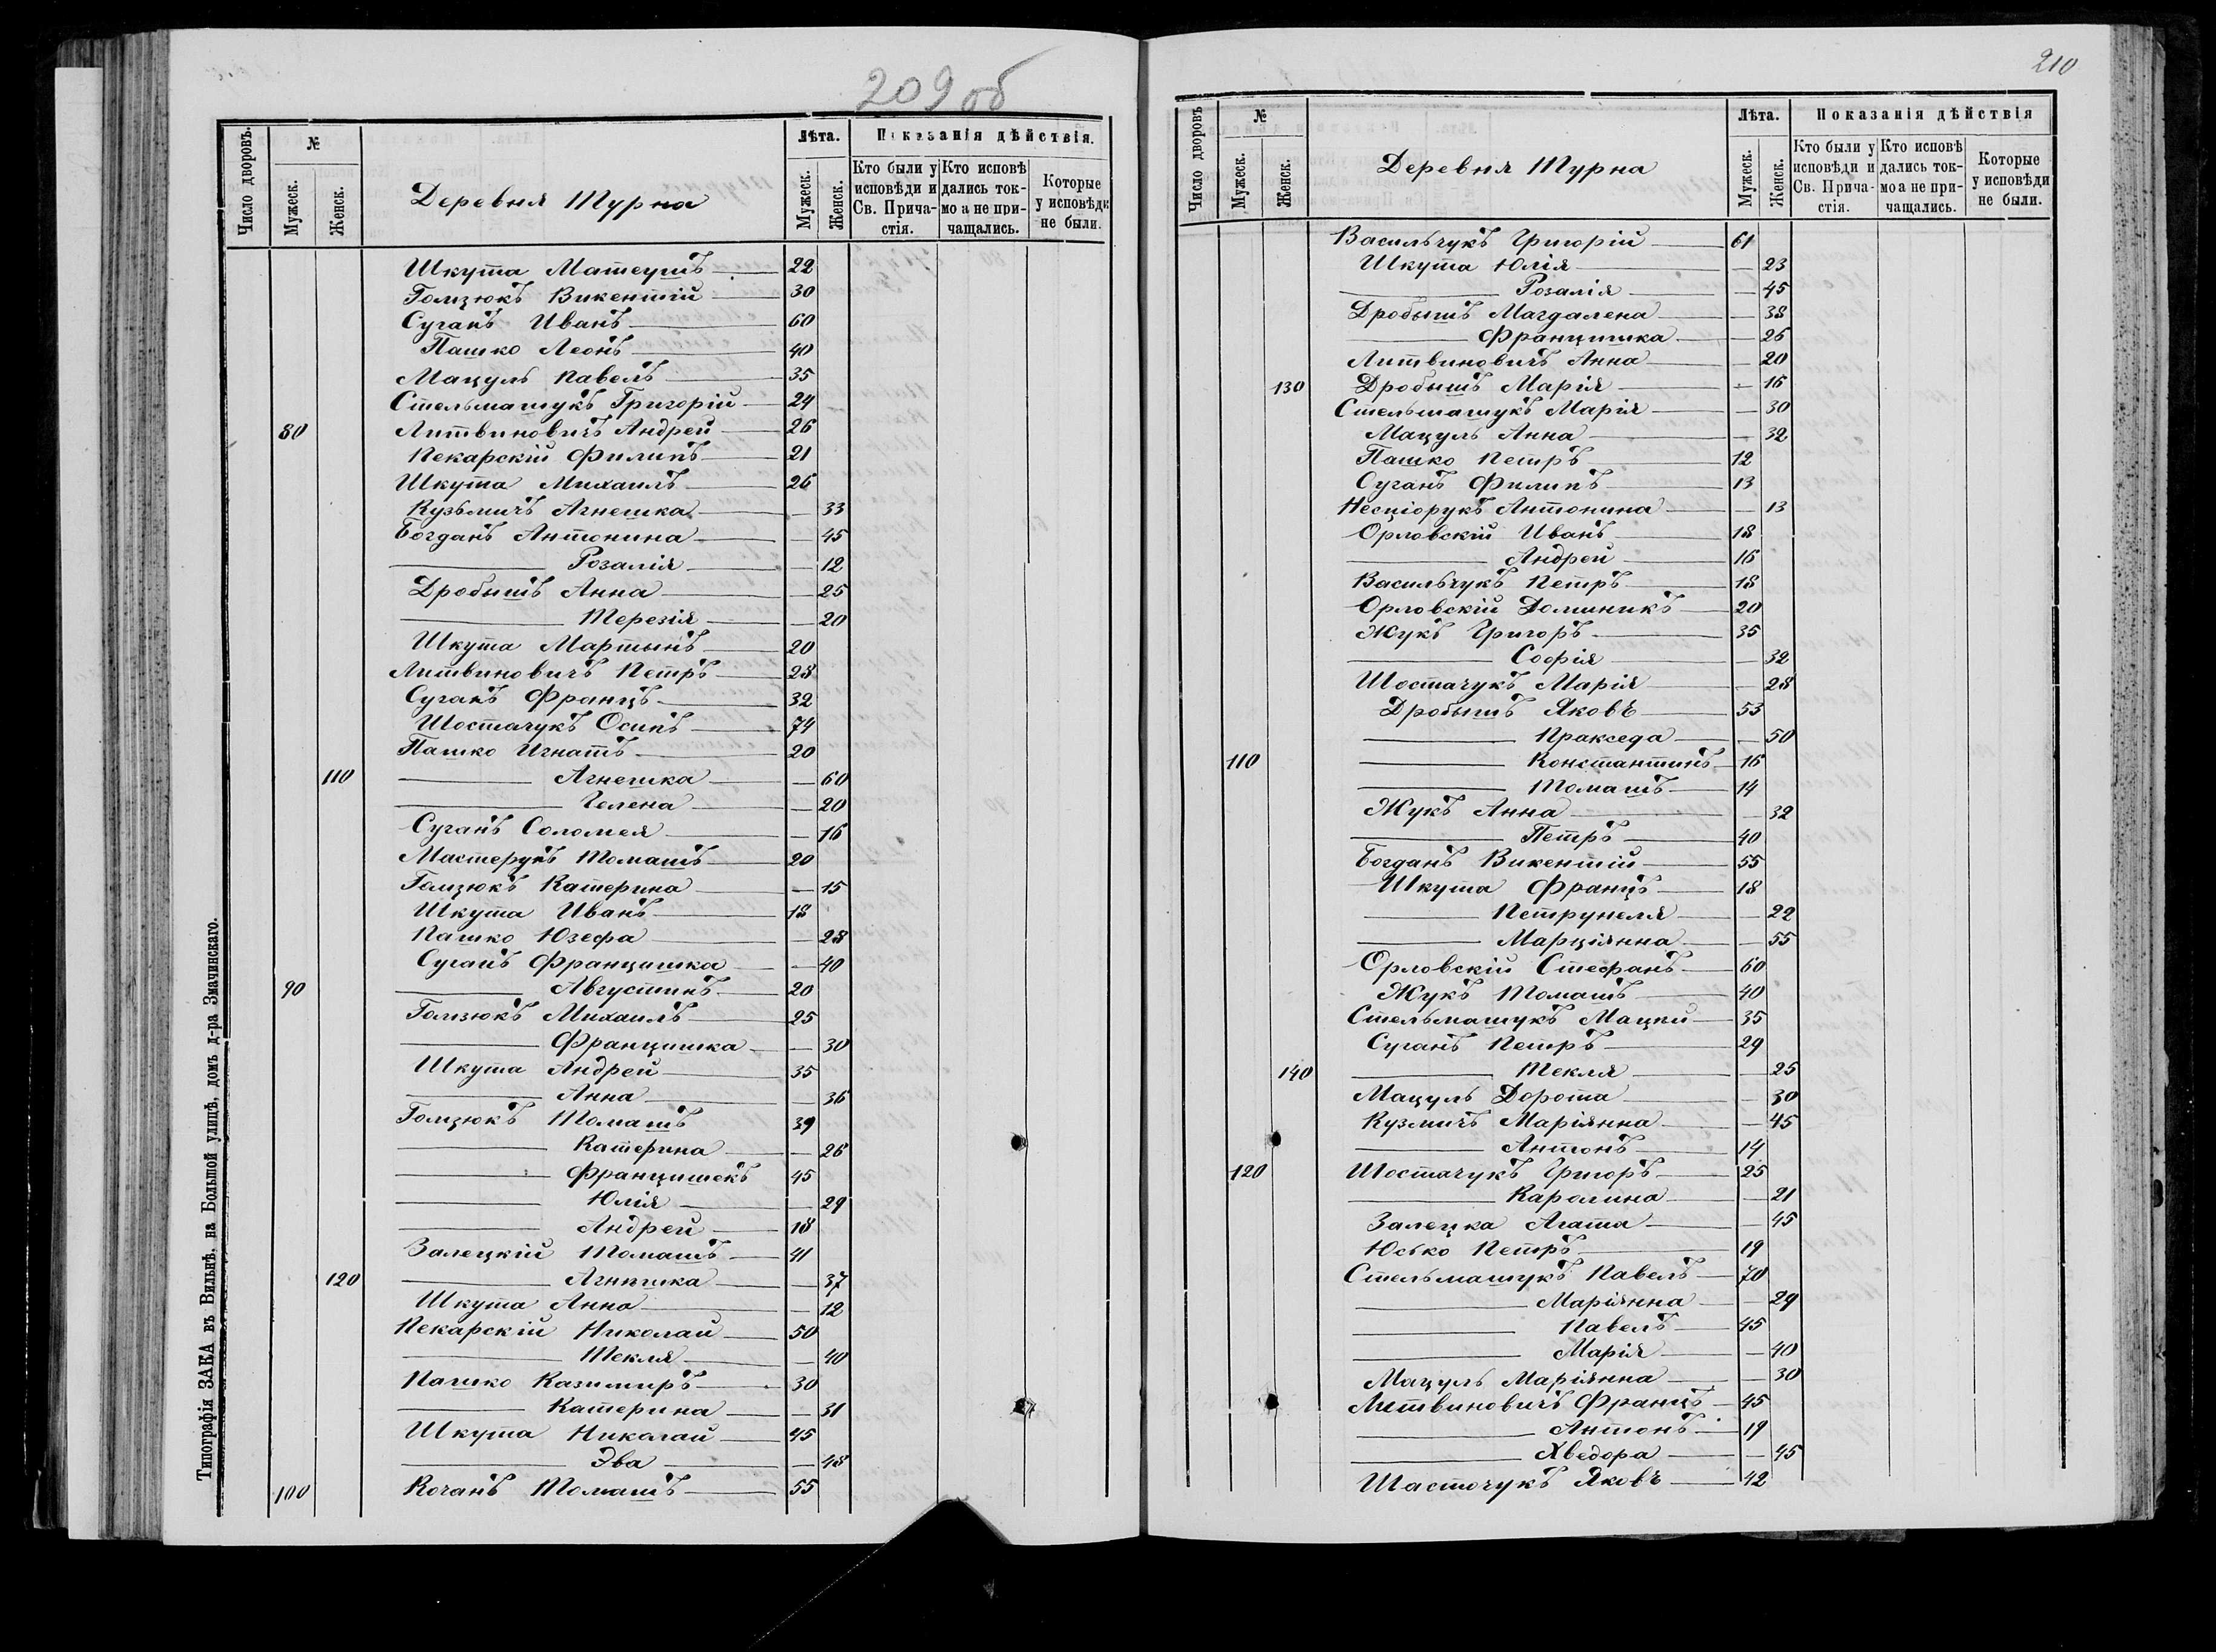 209 об
Число дворовъ.
№
Мужеск.
Женск.
Деревня Турна
Лѣта.
Мужеск.
Женск.
Показанія дѣйствія.
Кто были у исповѣди и Св. Причастія.
Кто исповѣдались токмо а не причащались.
Которые у исповѣди не были.
Шкута Матеушъ 22
Гомзюкъ Викентій 30
Суганъ Иванъ 60
Пашко Леонъ 40
Мацуль Павелъ 35
Стельмашукъ Григорій 24
80 Литвиновичъ Андрей 26
Пекарскій Филипъ 21
Шкута Михаилъ 26
Кузьмичъ Агнешка — 33
Богданъ Антонина — 45
— Розалія — 12
Дробышъ Анна — 25
— Терезія — 20
Шкута Мартынъ 20
Литвиновичъ Петръ 28
Суганъ Францъ 32
Шостачукъ Осипъ 74
Пашко Игнатъ 20
110 — Агнешка — 60
— Гелена — 20
Суганъ Соломея — 16
Мастерукъ Томашъ 20
Гомзюкъ Катерина — 15
Шкута Иванъ 18
Пашко Юзефа — 28
Суганъ Францишка — 40
90 — Августинъ 20
Гомзюкъ Михаилъ 25
— Францишка — 30
Шкута Андрей 35
— Анна — 36
Гомзюкъ Томашъ 39
— Катерина — 26
— Францишекъ 45
— Юлія — 29
— Андрей 18
Залецкій Томашъ 41
120 — Агнешка — 37
Шкута Анна — 12
Пекарскій Николай 50
— Текля — 40
Пашко Казимиръ 30
— Катерина — 31
Шкута Николай 45
— Эва — 48
100 Коганъ Томашъ 55
Типографія ЗАКА въ Вильнѣ, на Большой улицѣ, домъ д-ра Змачинскаго.
210
Число дворовъ
№
Мужеск.
Женск.
Деревня Турна
Лѣта.
Мужеск.
Женск.
Показанія дѣйствія
Кто были у исповѣди и Св. Причастія.
Кто исповѣдались токмо а не причащались.
Которые у исповѣди не были.
Васильчукъ Григорій 61
Шкута Юлія — 23
— Розалія — 45
Дробышъ Магдалена — 38
— Францишка — 26
Литвиновичъ Анна — 20
130 Дробышъ Марія — 16
Стельмашукъ Марія — 30
Мацуль Анна — 32
Пашко Петръ 12
Суганъ Филипъ 13
Несціорукъ Антонина — 13
Орловскій Иванъ 18
— Андрей 16
Васильчукъ Петръ 18
Орловскій Доминикъ 20
Жукъ Григоръ 35
— Софія — 32
Шостачукъ Марія — 28
Дробышъ Яковъ 53
— Пракседа — 50
110 — Константинъ 16
— Томашъ 14
Жукъ Анна — 32
— Петръ 40
Богданъ Викентій 55
Шкута Францъ 18
— Петрунеля — 22
— Марціянна — 55
Орловскій Стефанъ 60
Жукъ Томашъ 40
Стельмашукъ Мацпи 35
Суганъ Петръ 29
140 — Текля — 25
Мацуль Дорота — 30
Кузмичъ Маріянна — 45
— Антонъ 14
120 Шостачукъ Григоръ 25
— Каролина — 21
Залецка Агата — 45
Юсько Петръ 19
Стельмашукъ Павелъ 70
— Маріянна — 29
— Павелъ 45
— Марія — 40
Мацуль Маріянна — 30
Литвиновичъ Францъ 45
— Антонъ 19
— Хведора — 45
Шасточукъ Яковъ 42